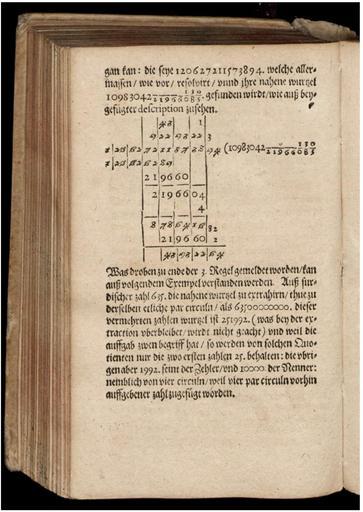 gan kan: die seye 120627211573894. welche aller-
maſſen / wie vor / reſolvirt / vnnd jhre nahene wurtzel
10983042 130/21966085. gefunden wirdt / wie auß bey-
gefügter deſcription zuſehen.
(10983042 130/21966085
219660
2196604
4
219660 2
Was droben zu ende der 3. Regel gemeldet worden / kan
auß volgendem Exempel verſtanden werden. Auß ſur-
diſcher zahl 635. die nahene wurtzel zu extrahirn / thue zu
derſelben etliche par circuln / als 63500000000. dieſer
vermehrten zahlen wurtzel iſt 251992. (was bey der ex-
traction vberbleibet / wirdt nicht geacht) vnd weil die
auffgab zwen begriff hat / ſo werden von ſolchen Quo-
tienten nur die zwo erſten zahlen 25. behalten: die vbri-
gen aber 1992. ſeint der Zehler / vnd 10000. der Nenner:
nemblich von vier circuln / weil vier par circuln vorhin
auffgebener zahl zugefügt worden.